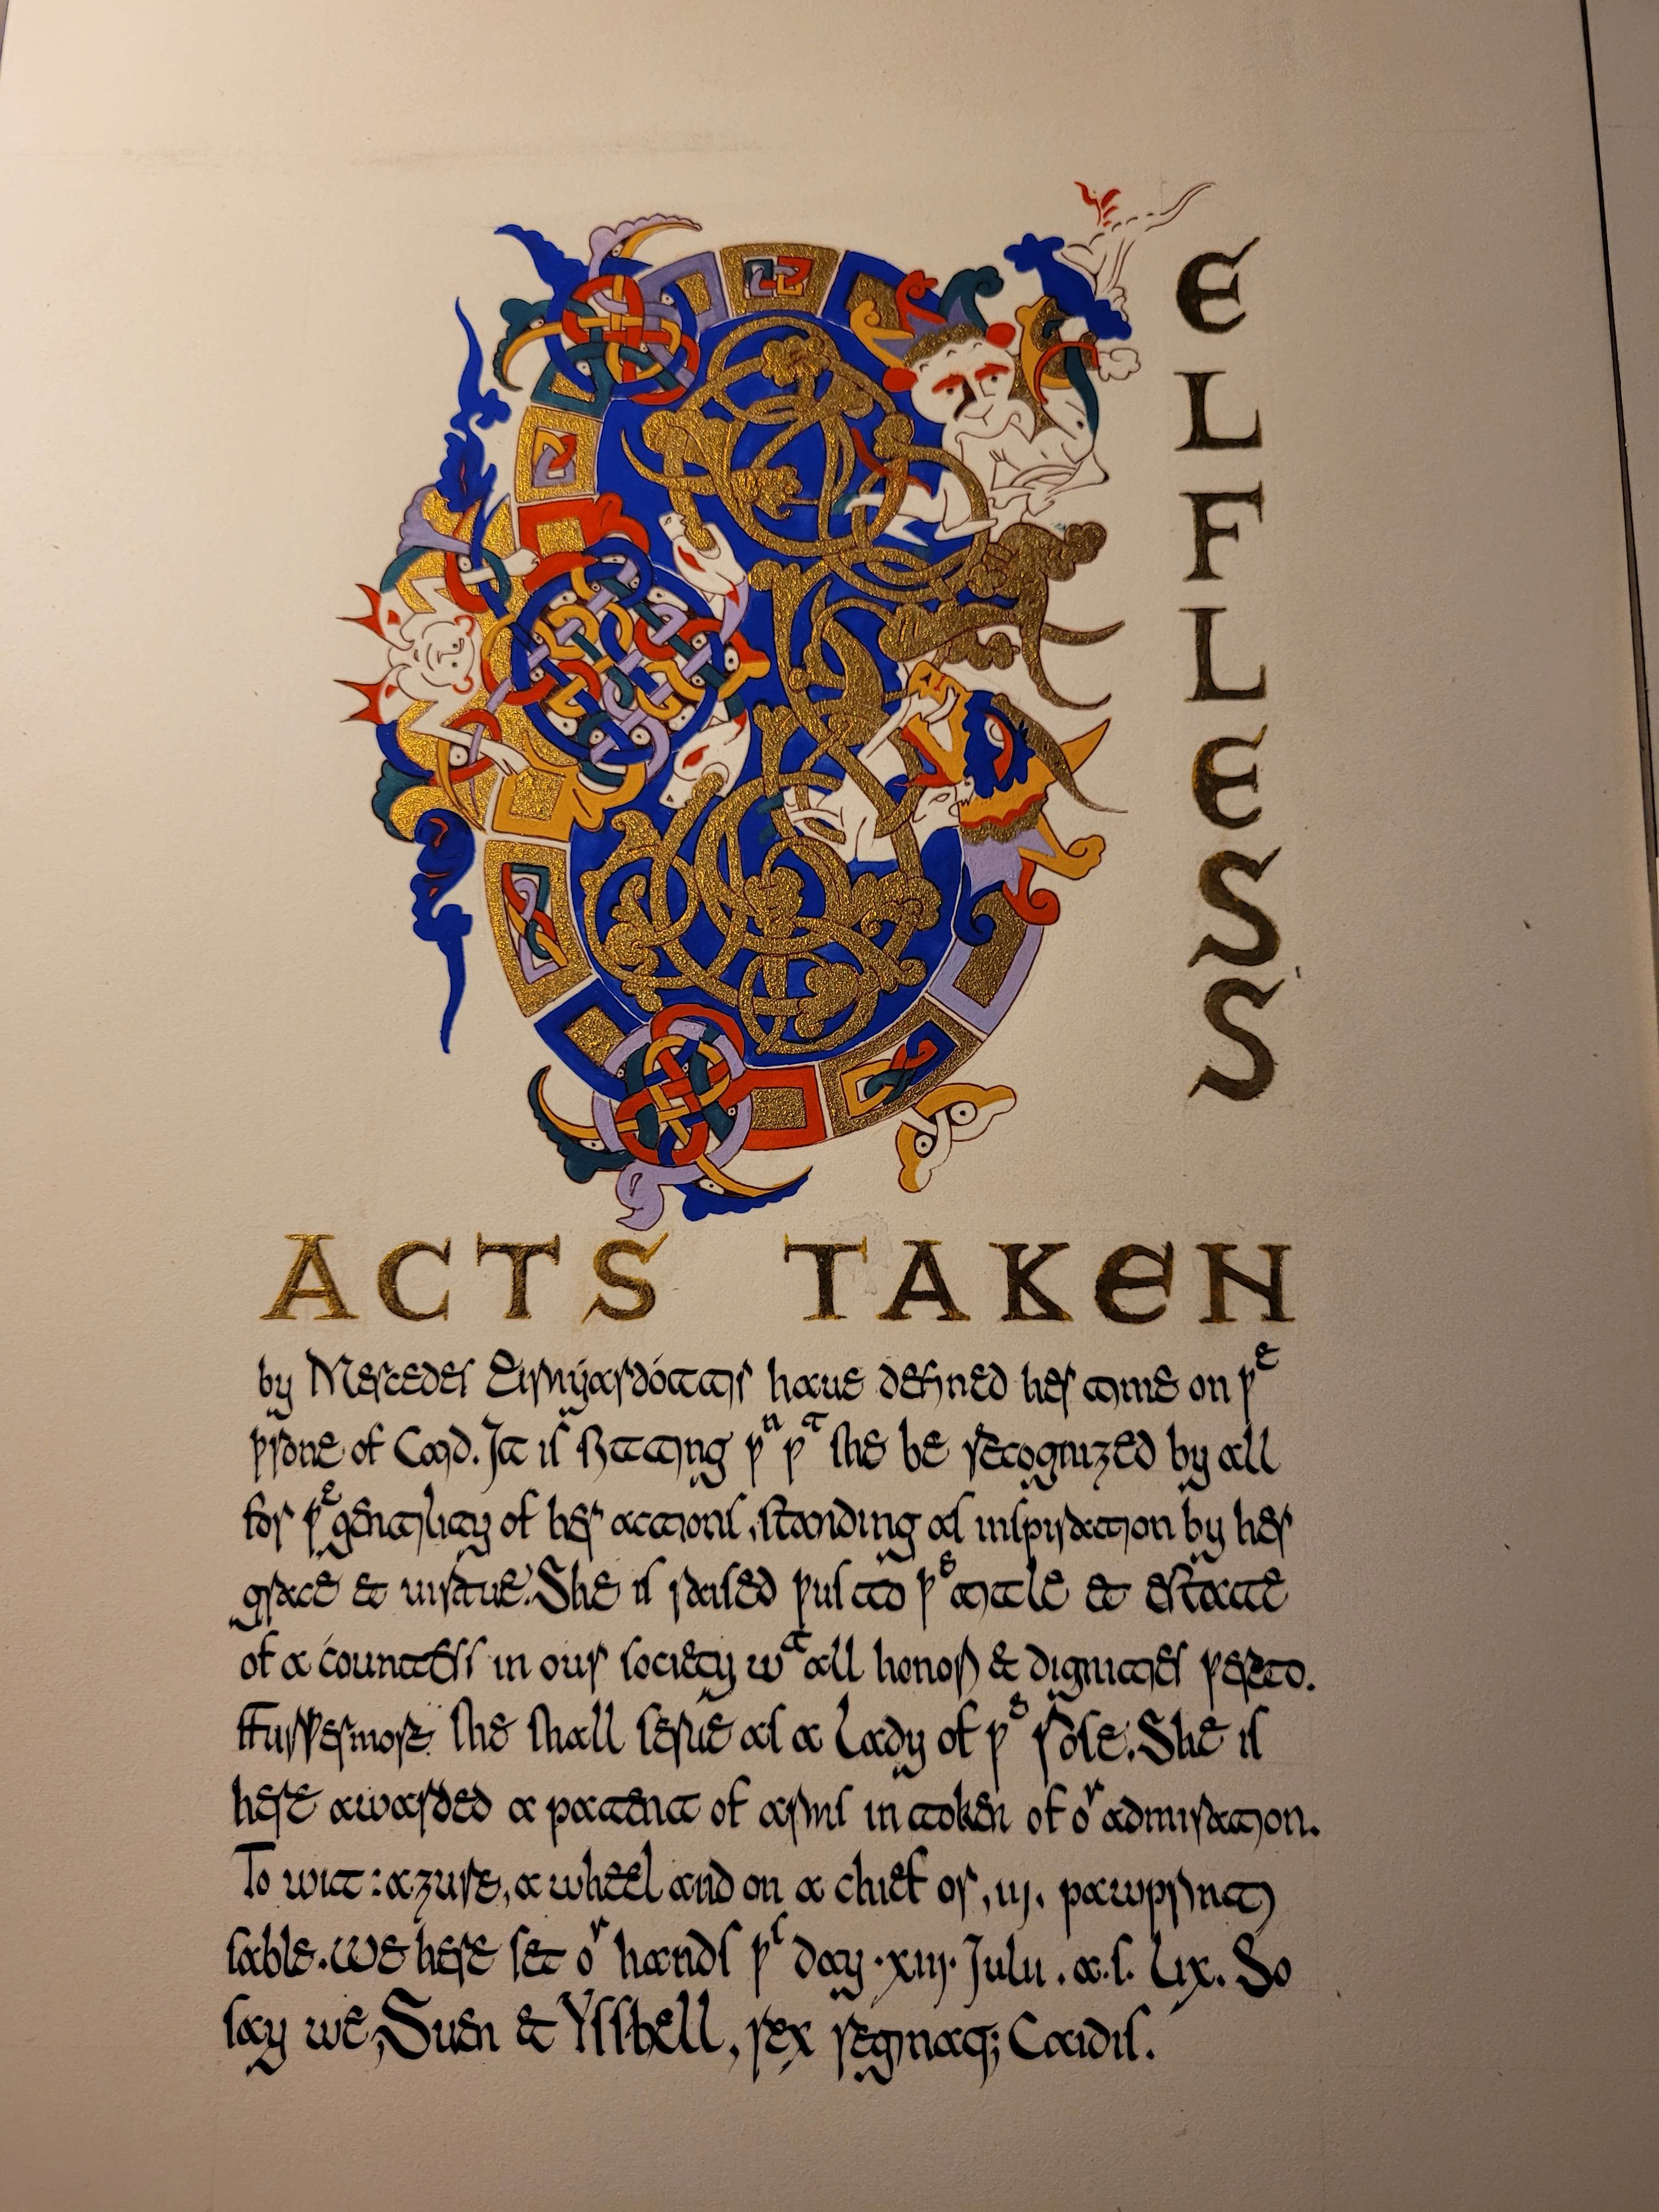 S
E
L
F
L
E
S
S
ACTS TAKEN
by Mercedes Eirnýjardóttir haue defined her time on þᵉ
þrone of Caid. It is fitting þⁿ þᵗ she be recognized by all
for þᵉ gentility of her actions, standing as inspiration by her
grace & uirtue. She is raised þus to þᵉ title & estate
of a countess in our society wᵗ all honors & dignities þerto.
ffurþermore she shall serue as a Lady of þᵉ rose. She is
here awarded a patent of arms in token of oʳ admiration.
To wit: azure, a wheel and on a chief or, iij. pawprints
sable. We here set oʳ hands þˢ day ·xiij· Julii. a.s. Lix. So
say we, Suen & Yssbell, rex reginaq; Caidis.